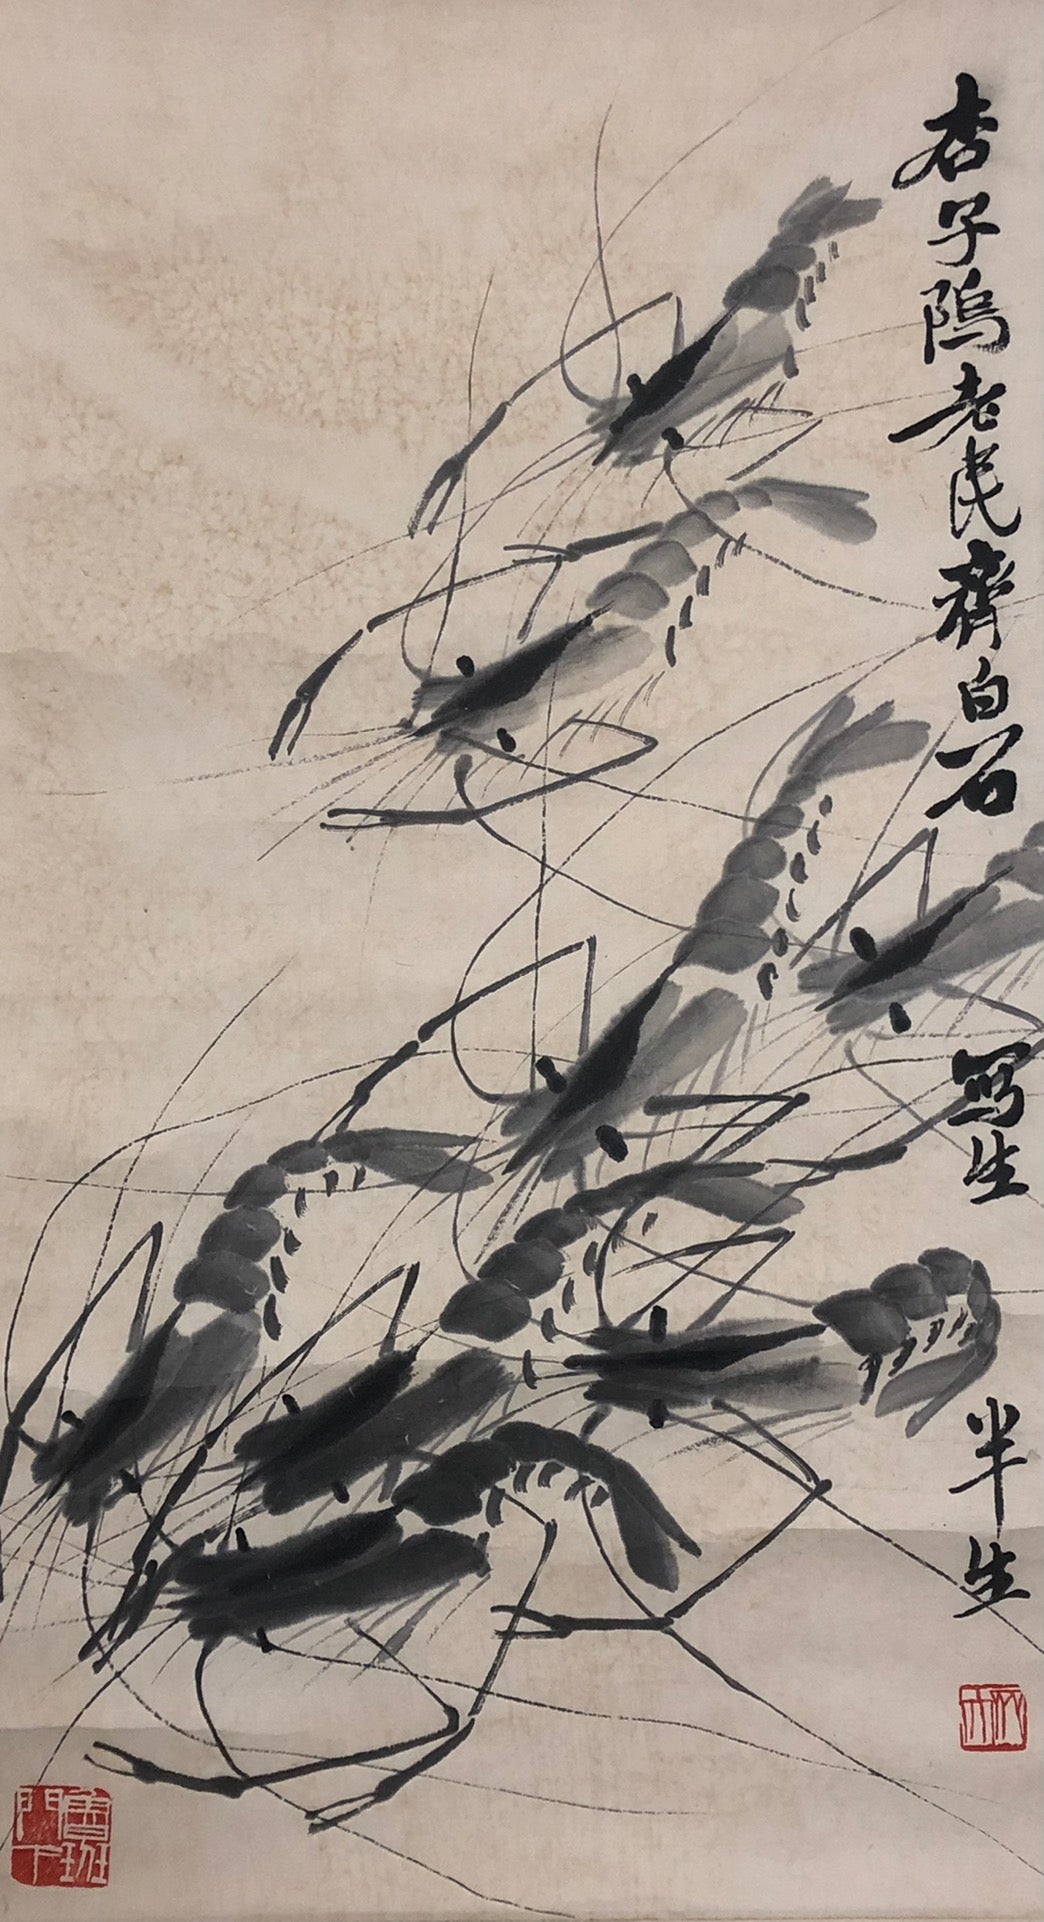 杏子隖老民齊白石寫生半生
魯班門下